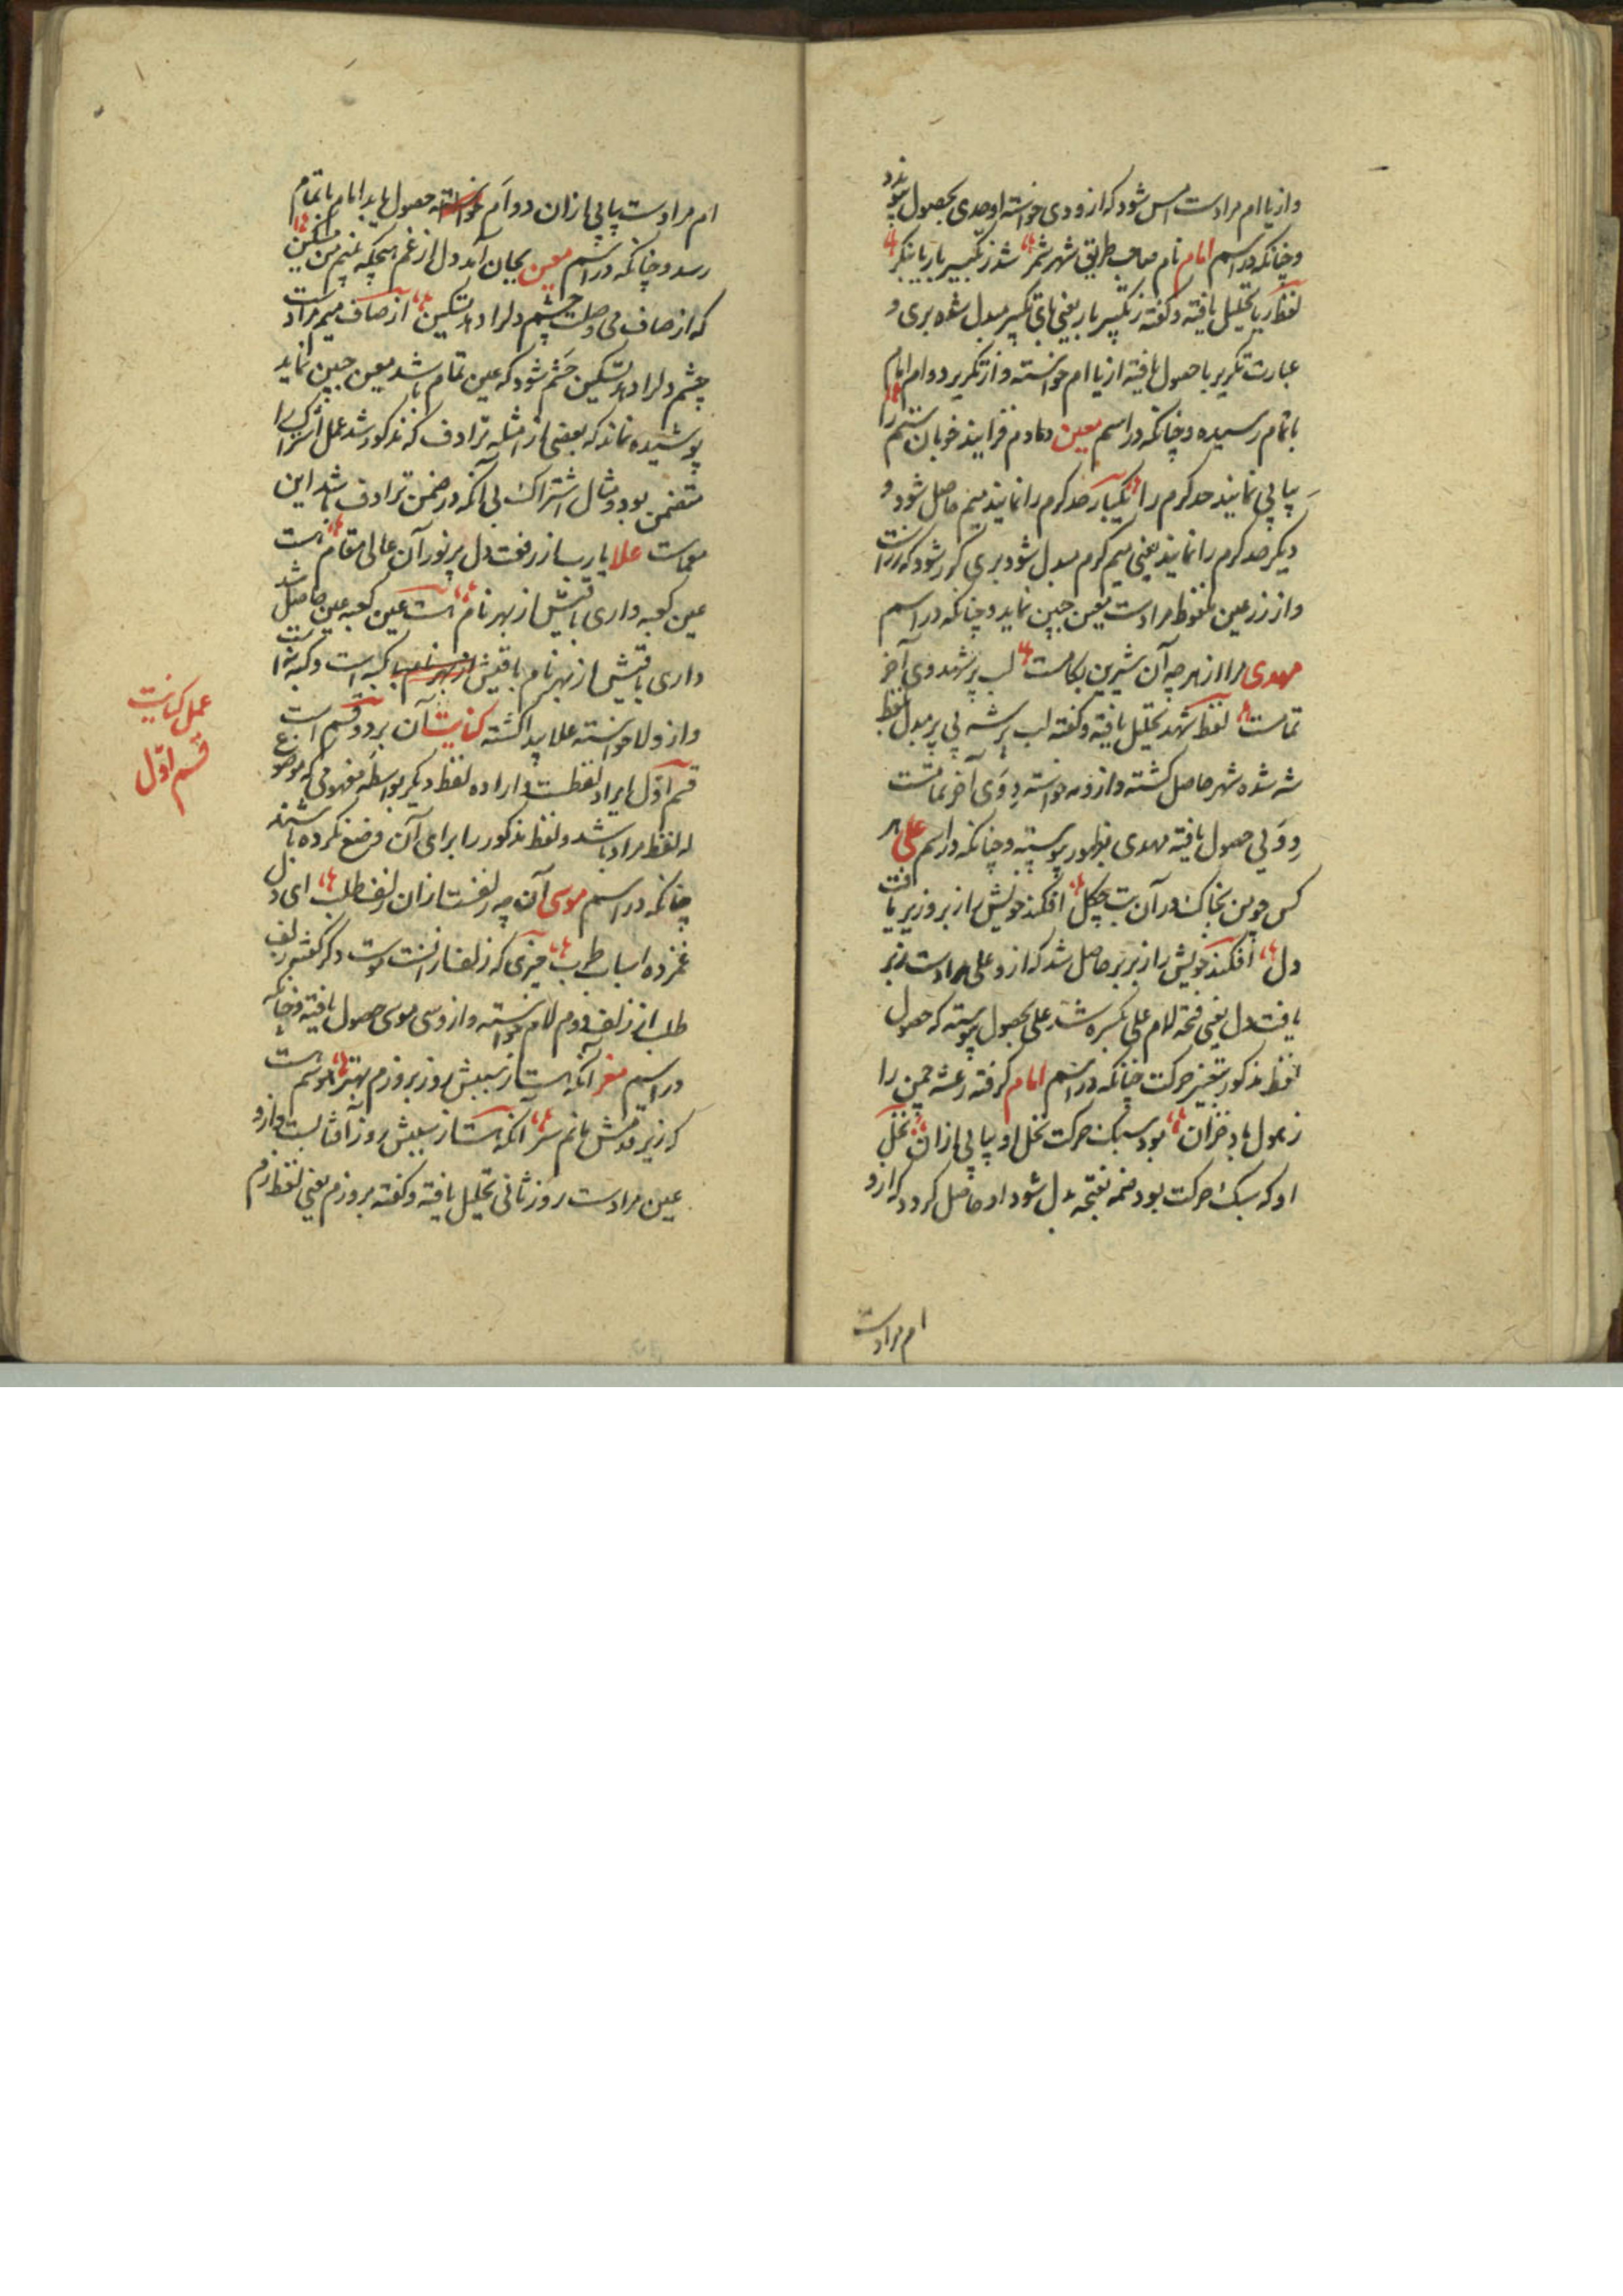 واز یا ام مرادست امس شود که از و دی خواسته اوحدی بحصول پیوندد
وچنانکه در اسم امام نام صاحب طریق شهر شمر شد ز تکبیر یار با بنکر
لفظ یا تحلیل یافته وکفته ز تکبیر یار یعنی بای تکبیر مبدل شده بری و
عبارت تکریر با حصول یافته از یا ام خواسته واز تکریر دو ام امام
باتمام رسیده وچنانکه در اسم معین دمادم فزایند خوبان ستم را
پیاپی نمایند حد کرم را یکبار حد کرم را نمایند میم حاصل شود و
دیکر حد کرم را نمایند یعنی میم کرم مبدل شود بری کرر شود که زر است
واز زر عین ملفوظ مرادست معین جبین نماید وچنانکه در اسم
مهدی مرا از هر چه آن شیرین بکامست لب پر شهد وی آخر
تمامست لفظ شهد تحلیل یافته وکفته لب پر شه یعنی پر مبدل بلفظ
شه شده شهر حاصل کشته واز و مه خواسته د وی آخر تمامست
د و ی حصول یافته مهدی بظهور پیوسته وچنانکه در اسم علی
کس چو من بخاک در آن بت چکل افکند خویش را ز بر وزیر یافت
دل افکند خویش را ز بر بر حاصل شد که از و علی مرادست زیر
یافت دل یعنی فتحه لام علی بکسره شد علی بحصول پیوسته که حصول
لفظ مذکور بتغییر حرکت چنانکه در اسم امام کرفته رعشه چمن را
ز هول باد خزان بود سبک حرکت نخل او پیاپی ازان نخل
او که سبک حرکت بود ضمه بفتحه بدل شود او حاصل کردد که از و
ام مرادست
ام مرادست پیاپی ازان دو ام خواسته حصول یابد امام باتمام
رسد وچنانکه در اسم معین بجان آمد دل از غم همچکه غنیم من مسکین
که از صاف می وصلت چشم دلرا دهد تسکین از صاف میم مرادست
چشم دلرا دهد تسکین چشم شود که عین تمام باشد معین جبین نماید
پوشیده نماند که بعضی از امثله ترادف که مذکور شد عمل اشتراک را
متضمن بود ومثال اشتراک بی آنکه در ضمن ترادف باشد این
معماست علا یارب ساز رفعت دل پر نور آن عالی مقام هست
عین کعبه داری باقیش از بهر نام هست عین کعبه عین حاصل شد
داری باقیش از بهر نام باقیش از بهر نام بکه است وکبه را
واز و لا خواسته علا پیدا کشته کنایت آن بر دو قسم است
قسم اول ایراد لفظست واراده لفظ دیکر بواسطه مفهومی که موضوع
له لفظ مراد باشد ولفظ مذکور را برای آن وضع نکرده باشند
چنانکه در اسم موسی آن چه زلفست ازان زلف طلب ای دل
غمزده اسباب طرب چیزی که زلف از انست موست دکر کفته زلف
طلب از زلف دوم لام خواسته واز و سی موسی حصول یافته وچنانکه
در اسم معز آنکه هست از سببش روز بروزم بهتر هوسم هست
که زیر قدمش بازم سر آنکه هست از سببش روز آفتابست واز و
عین مرادست روز ثانی تحلیل یافته وکفته بروزم یعنی لفظ زم
عمل کنایت
قسم اول